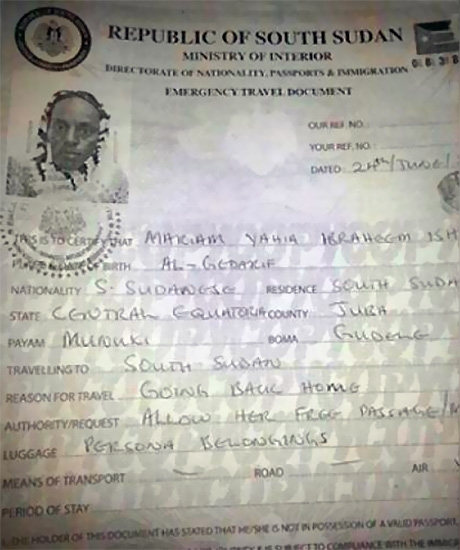 REPUBLIC OF SOUTH SUDAN
MINISTRY OF INTERIOR
DIRECTORATE OF NATIONALITY, PASSPORTS & IMMIGRATION
EMERGENCY TRAVEL DOCUMENT
OUR REF. NO.
YOUR REF. NO.
DATED: 24th/JUNE/
THIS IS TO CERTIFY THAT MARIAM YAHIA IBRAHEEM ISH
PLACE & DATE OF BIRTH AL-GEDARIF
NATIONALITY S. SUDANESE RESIDENCE SOUTH SUDA
STATE CENTRAL EQUATORIA COUNTY JUBA
PAYAM MUNUKI BOMA GUDELE
TRAVELLING TO SOUTH SUDAN
REASON FOR TRAVEL GOING BACK HOME
AUTHORITY/REQUEST ALLOW HER FREE PASSAGE/
LUGGAGE PERSONA BELONGINGS
MEANS OF TRANSPORT ROAD AIR
PERIOD OF STAY
THE HOLDER OF THIS DOCUMENT HAS STATED THAT HE/SHE IS NOT IN POSSESSION OF A VALID PASSPORT,
SUBJECT TO COMPLIANCE WITH THE